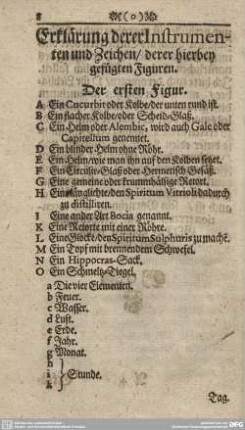 8 (o)
Erklärung derer Instrumen-
ten und Zeichen / derer hierbey
gefügten Figuren.
Der ersten Figur.
A Ein Cucurbit oder Kolbe / der unten rund ist.
B Ein flacher Kolbe / oder Scheid-Glaß.
C Ein Helm oder Alembic, wird auch Gale oder
Capitellum genennet.
D Ein blinder Helm ohne Röhr.
E Ein Helm / wie man ihn auf den Kolben setzet.
F Ein Circulir-Glaß oder Hermetisch Gefäß.
G Eine gemeine oder krummhälsige Retort.
H Eine länglichte / den Spiritum Vitrioli dadurch
zu distilliren.
I Eine ander Art Bocia genannt.
K Eine Retorte mit einer Röhre.
L Eine Glocke / den Spiritum Sulphuris zu machē.
M Ein Topf mit brennendem Schwefel.
N Ein Hippocras-Sack.
O Ein Schmeltz-Tiegel.
a Die vier Elementen.
b Feuer.
c Wasser.
d Luft.
e Erde.
f Jahr.
g Monat.
h
i } Stunde.
k
Tag.